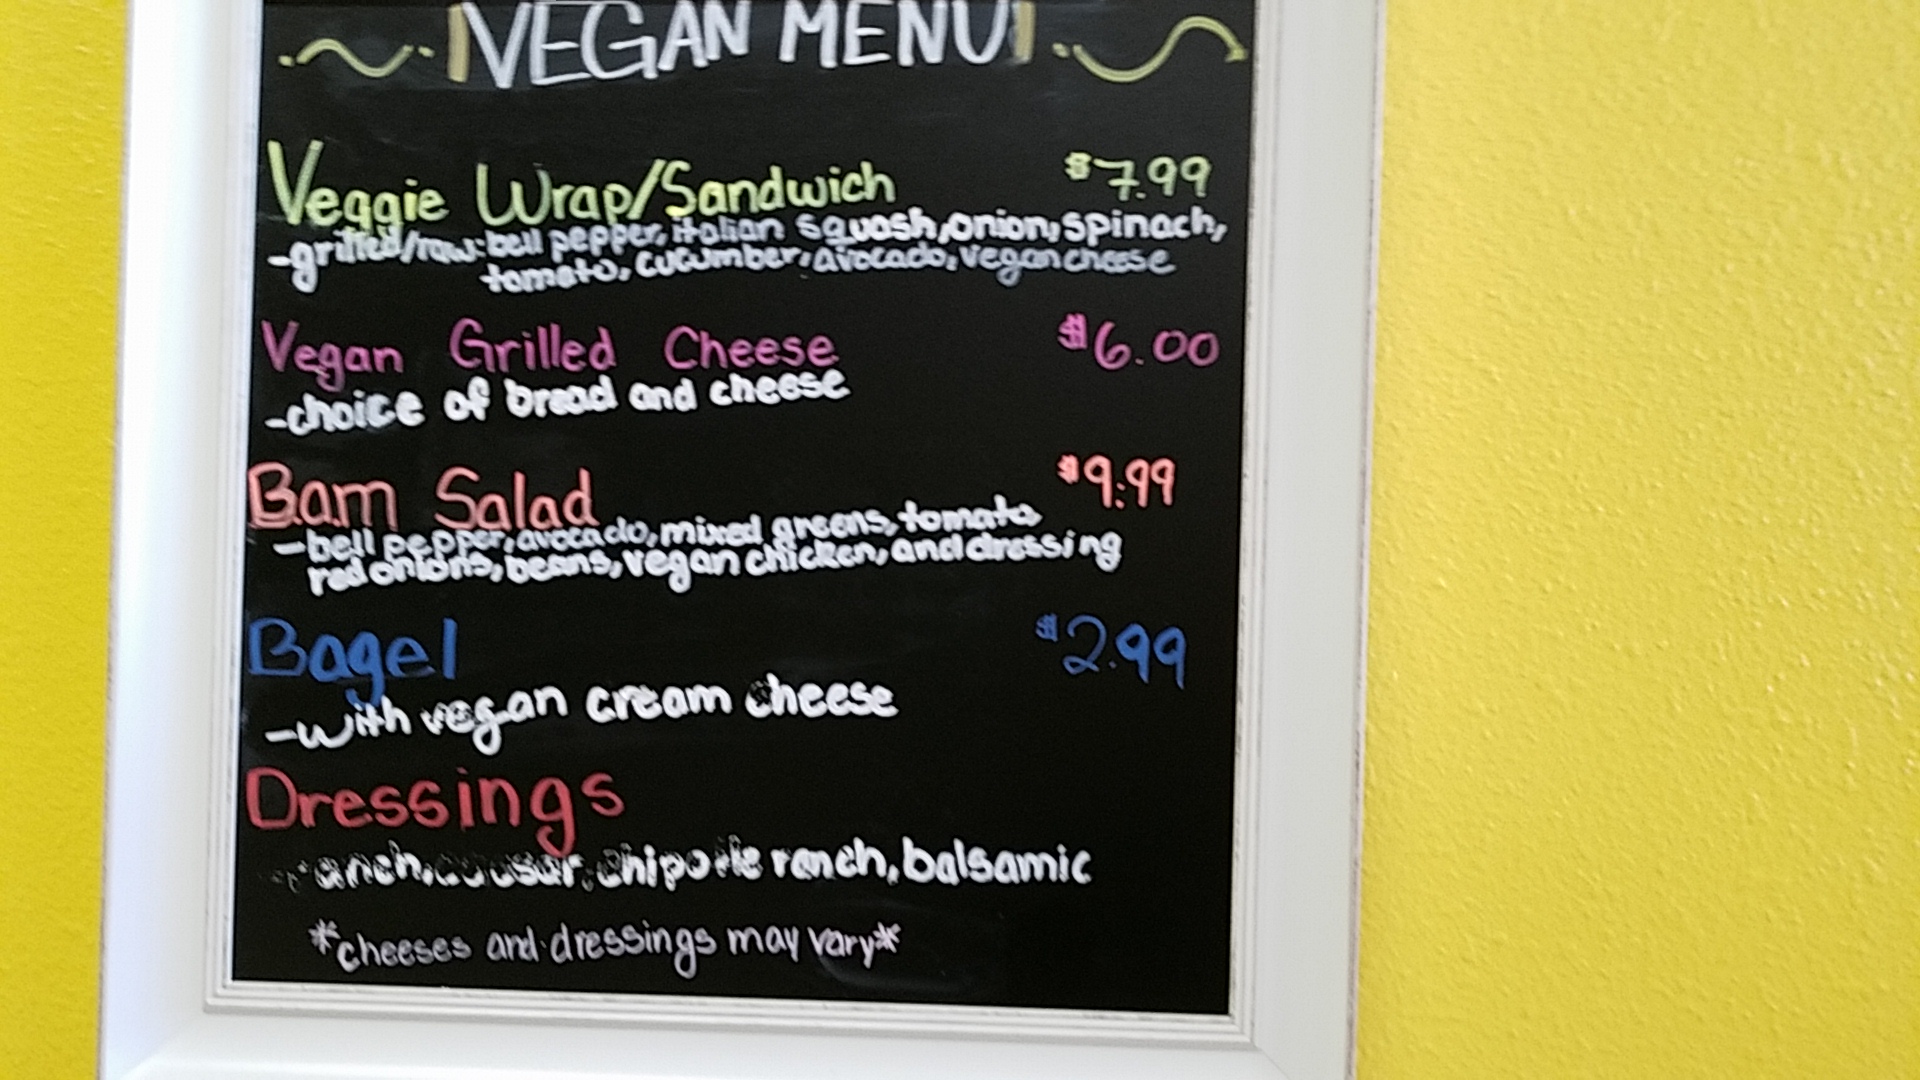 VEGAN MENU
Veggie Wrap/Sandwich $7.99
-grilled/raw: bell pepper, italian squash, onion, spinach,
tomato, cucumber, avocado, vegan cheese
Vegan Grilled Cheese $6.00
-choice of bread and cheese
Bam Salad $9.99
-bell pepper, avocado, mixed greens, tomato
red onions, beans, vegan chicken, and dressing
Bagel $2.99
-with vegan cream cheese
Dressings
ranch, chipotle ranch, balsamic
*cheeses and dressings may vary*